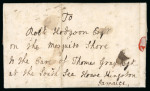 To
Robt Hodgson Esqr
on the Musquito Shore
to the Care of Thoms
at the South Sea House Kingston
Jamaica